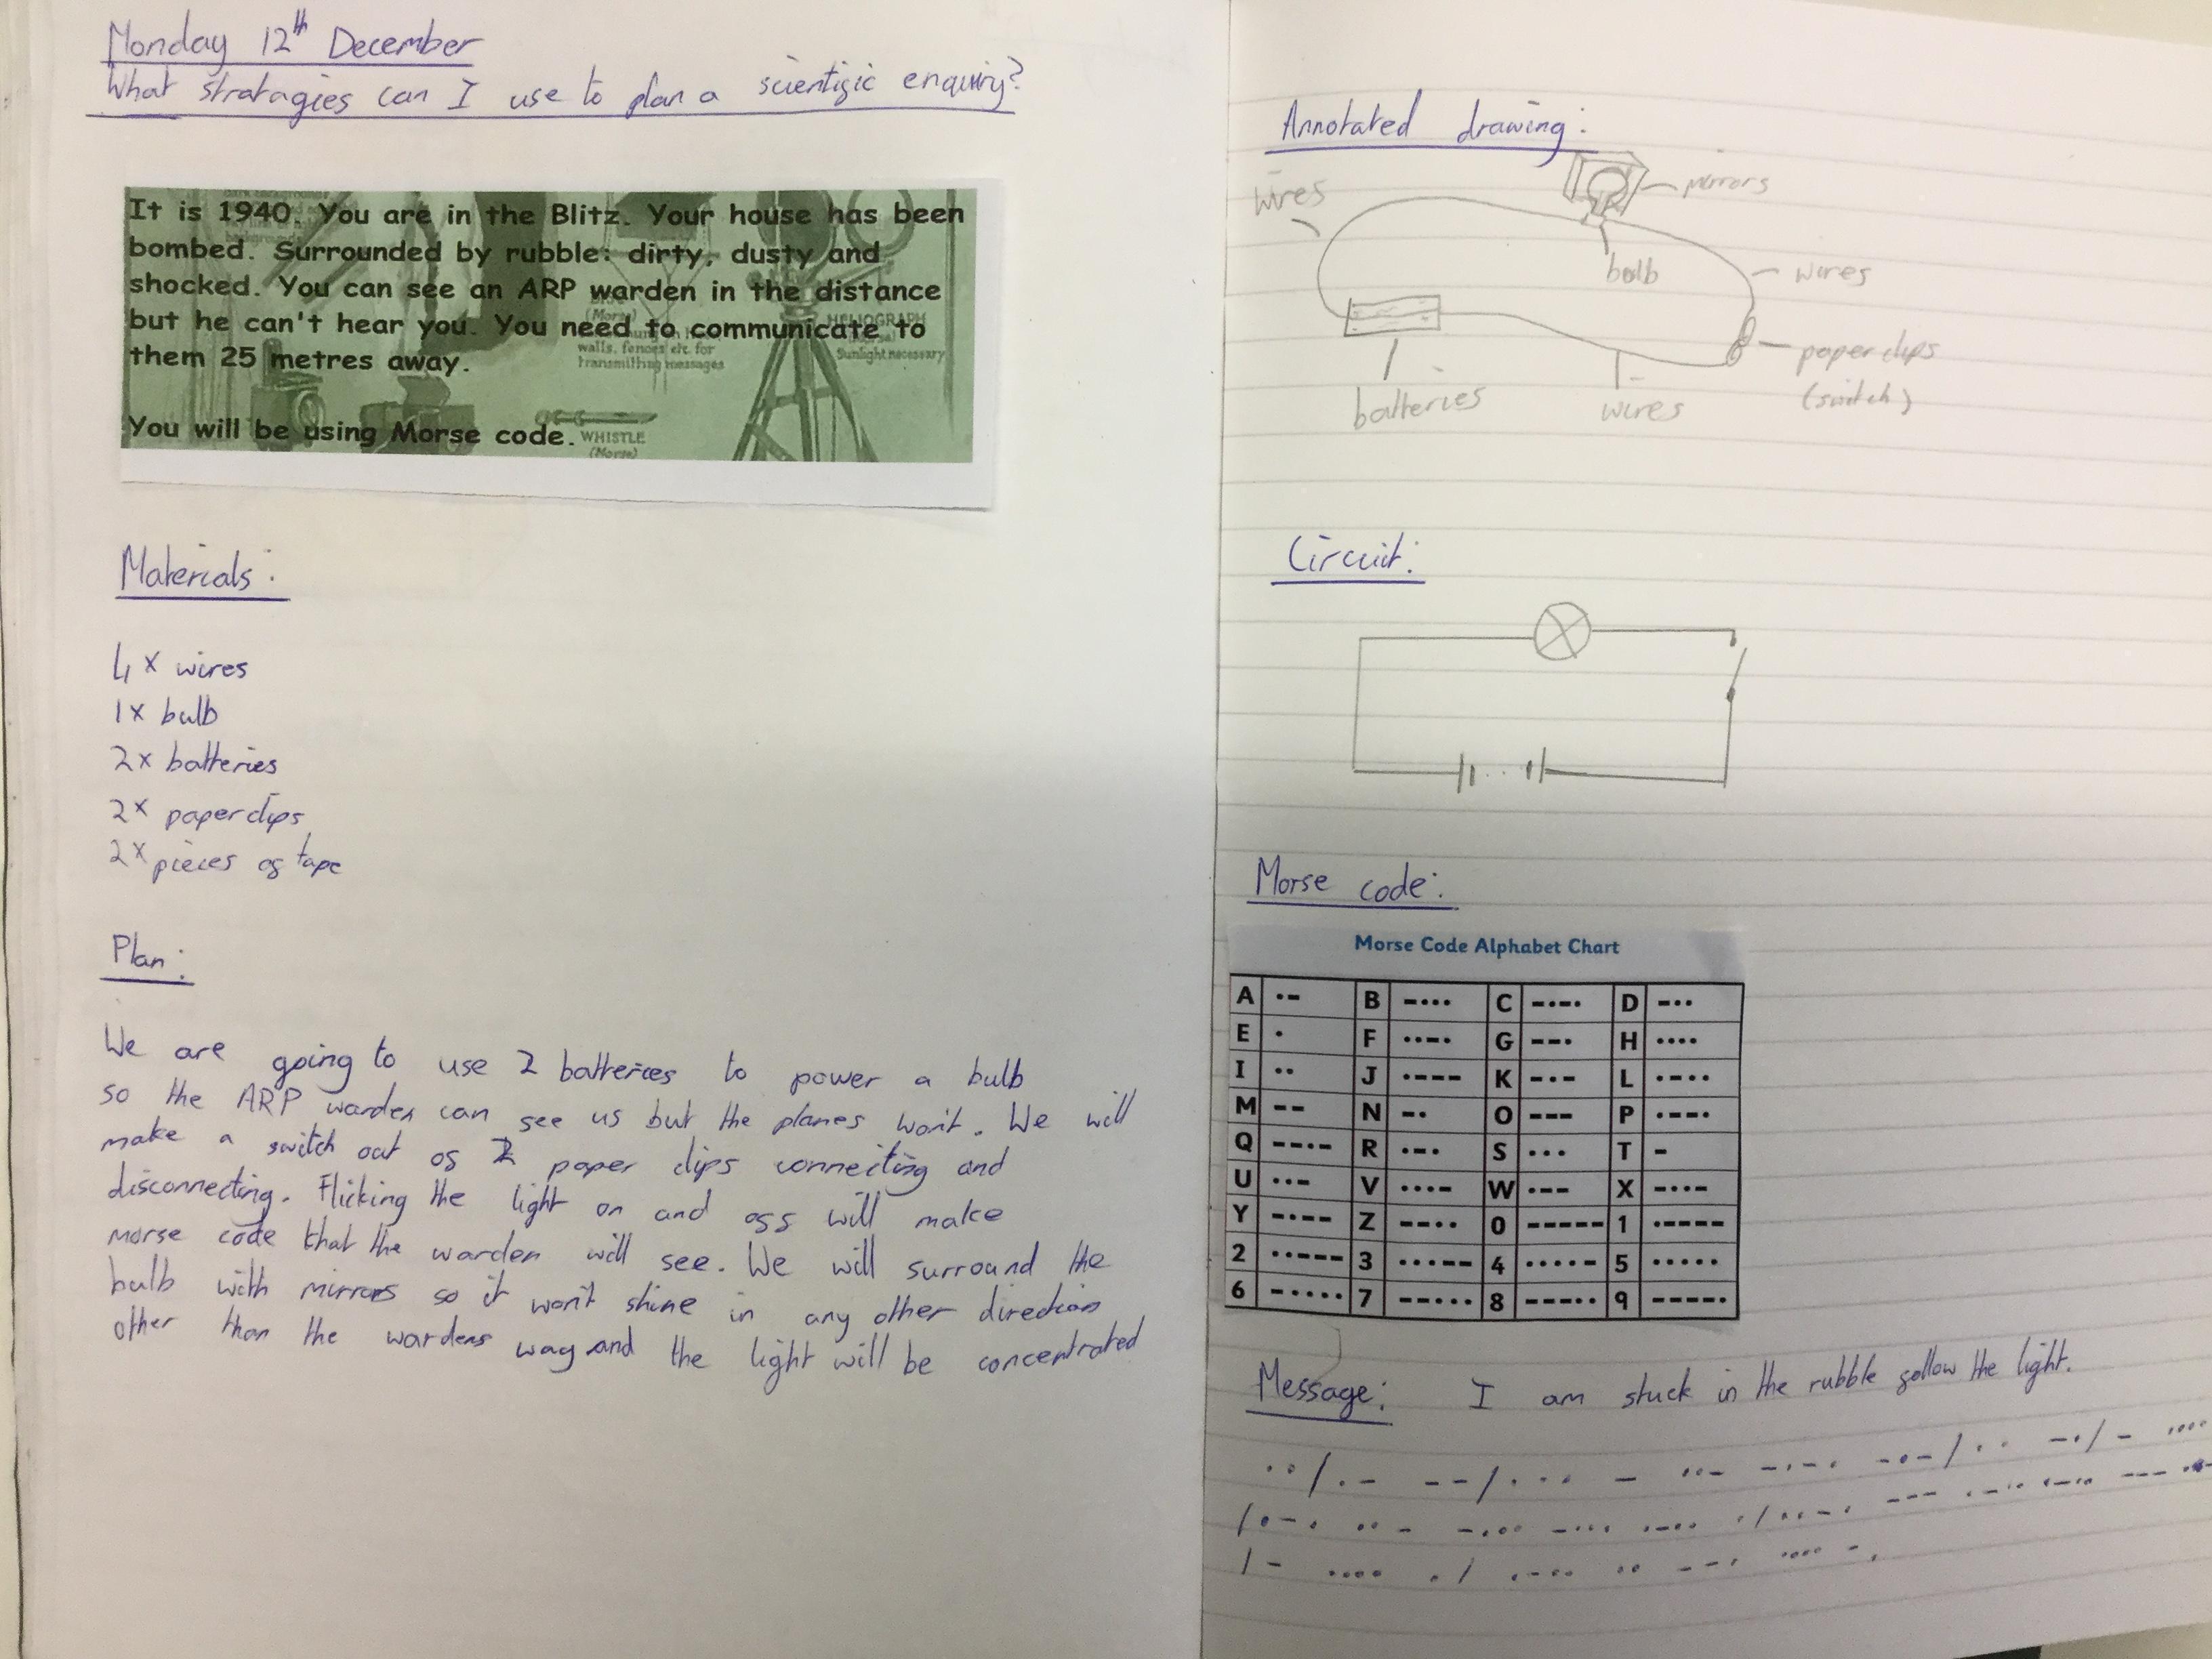 Monday 12th December
What stratagies can I use to plan a scientific enquiry?
It is 1940. You are in the Blitz. Your house has been
bombed. Surrounded by rubble: dirty, dusty and
shocked. You can see an ARP warden in the distance
but he can't hear you. You need to communicate to
them 25 metres away.
You will be using Morse code.
(Morse)
walls, fences etc for
transmitting messages
HELIOGRAPH
Sunlight necessary
WHISTLE
(Morse)
Materials:
4x wires
1x bulb
2x batteries
2x paperclips
2x pieces of tape
Plan:
We are going to use 2 batteries to power a bulb
so the ARP warden can see us but the planes won't. We will
make a switch out of 2 paper clips connecting and
disconnecting. Flicking the light on and off will make
morse code that the warden will see. We will surround the
bulb with mirrors so it won't shine in any other direction
other than the wardens way and the light will be concentrated
Annotated drawing:
wires
mirrors
bulb
wires
paperclips
(switch)
batteries
wires
Circuit:
Morse code:
Morse Code Alphabet Chart
A •– B –••• C –•–• D –••
E • F ••–• G ––• H ••••
I •• J •––– K –•– L •–••
M –– N –• O ––– P •––•
Q ––•– R •–• S ••• T –
U ••– V •••– W •–– X –••–
Y –•–– Z ––•• 0 ––––– 1 •––––
2 ••––– 3 •••–– 4 ••••– 5 •••••
6 –•••• 7 ––••• 8 –––•• 9 ––––•
Message: I am stuck in the rubble follow the light.
••/•– ––/••• – ••– –•–• –•–/•• –•/– ••••
/•–• ••– –••• –••• •–•• •/••–• ––– •–•• •–•• –––
/– •••• •/ •–•• •• ––• •••• –.